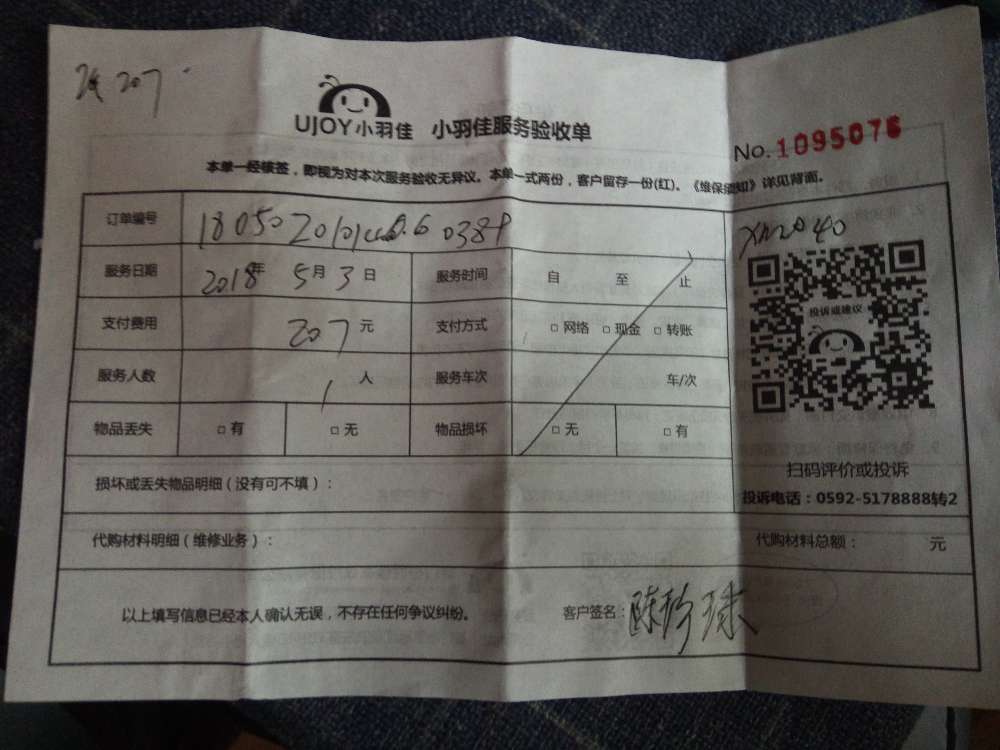 207
UJOY小羽佳 小羽佳服务验收单
No.1095076
本单一经核签，即视为对本次服务验收无异议。本单一式两份，客户留存一份(红)。《维保须知》详见背面。
订单编号
服务日期 2018年 5月 3日 服务时间 自 至 止
投诉或建议
支付费用 207元 支付方式 □网络 □现金 □转账
服务人数 1人 服务车次 车/次
物品丢失 □有 □无 物品损坏 □无 □有
扫码评价或投诉
损坏或丢失物品明细（没有可不填）：
投诉电话：0592-5178888转2
代购材料明细（维修业务）： 代购材料总额： 元
以上填写信息已经本人确认无误，不存在任何争议纠纷。 客户签名：陈珍珠